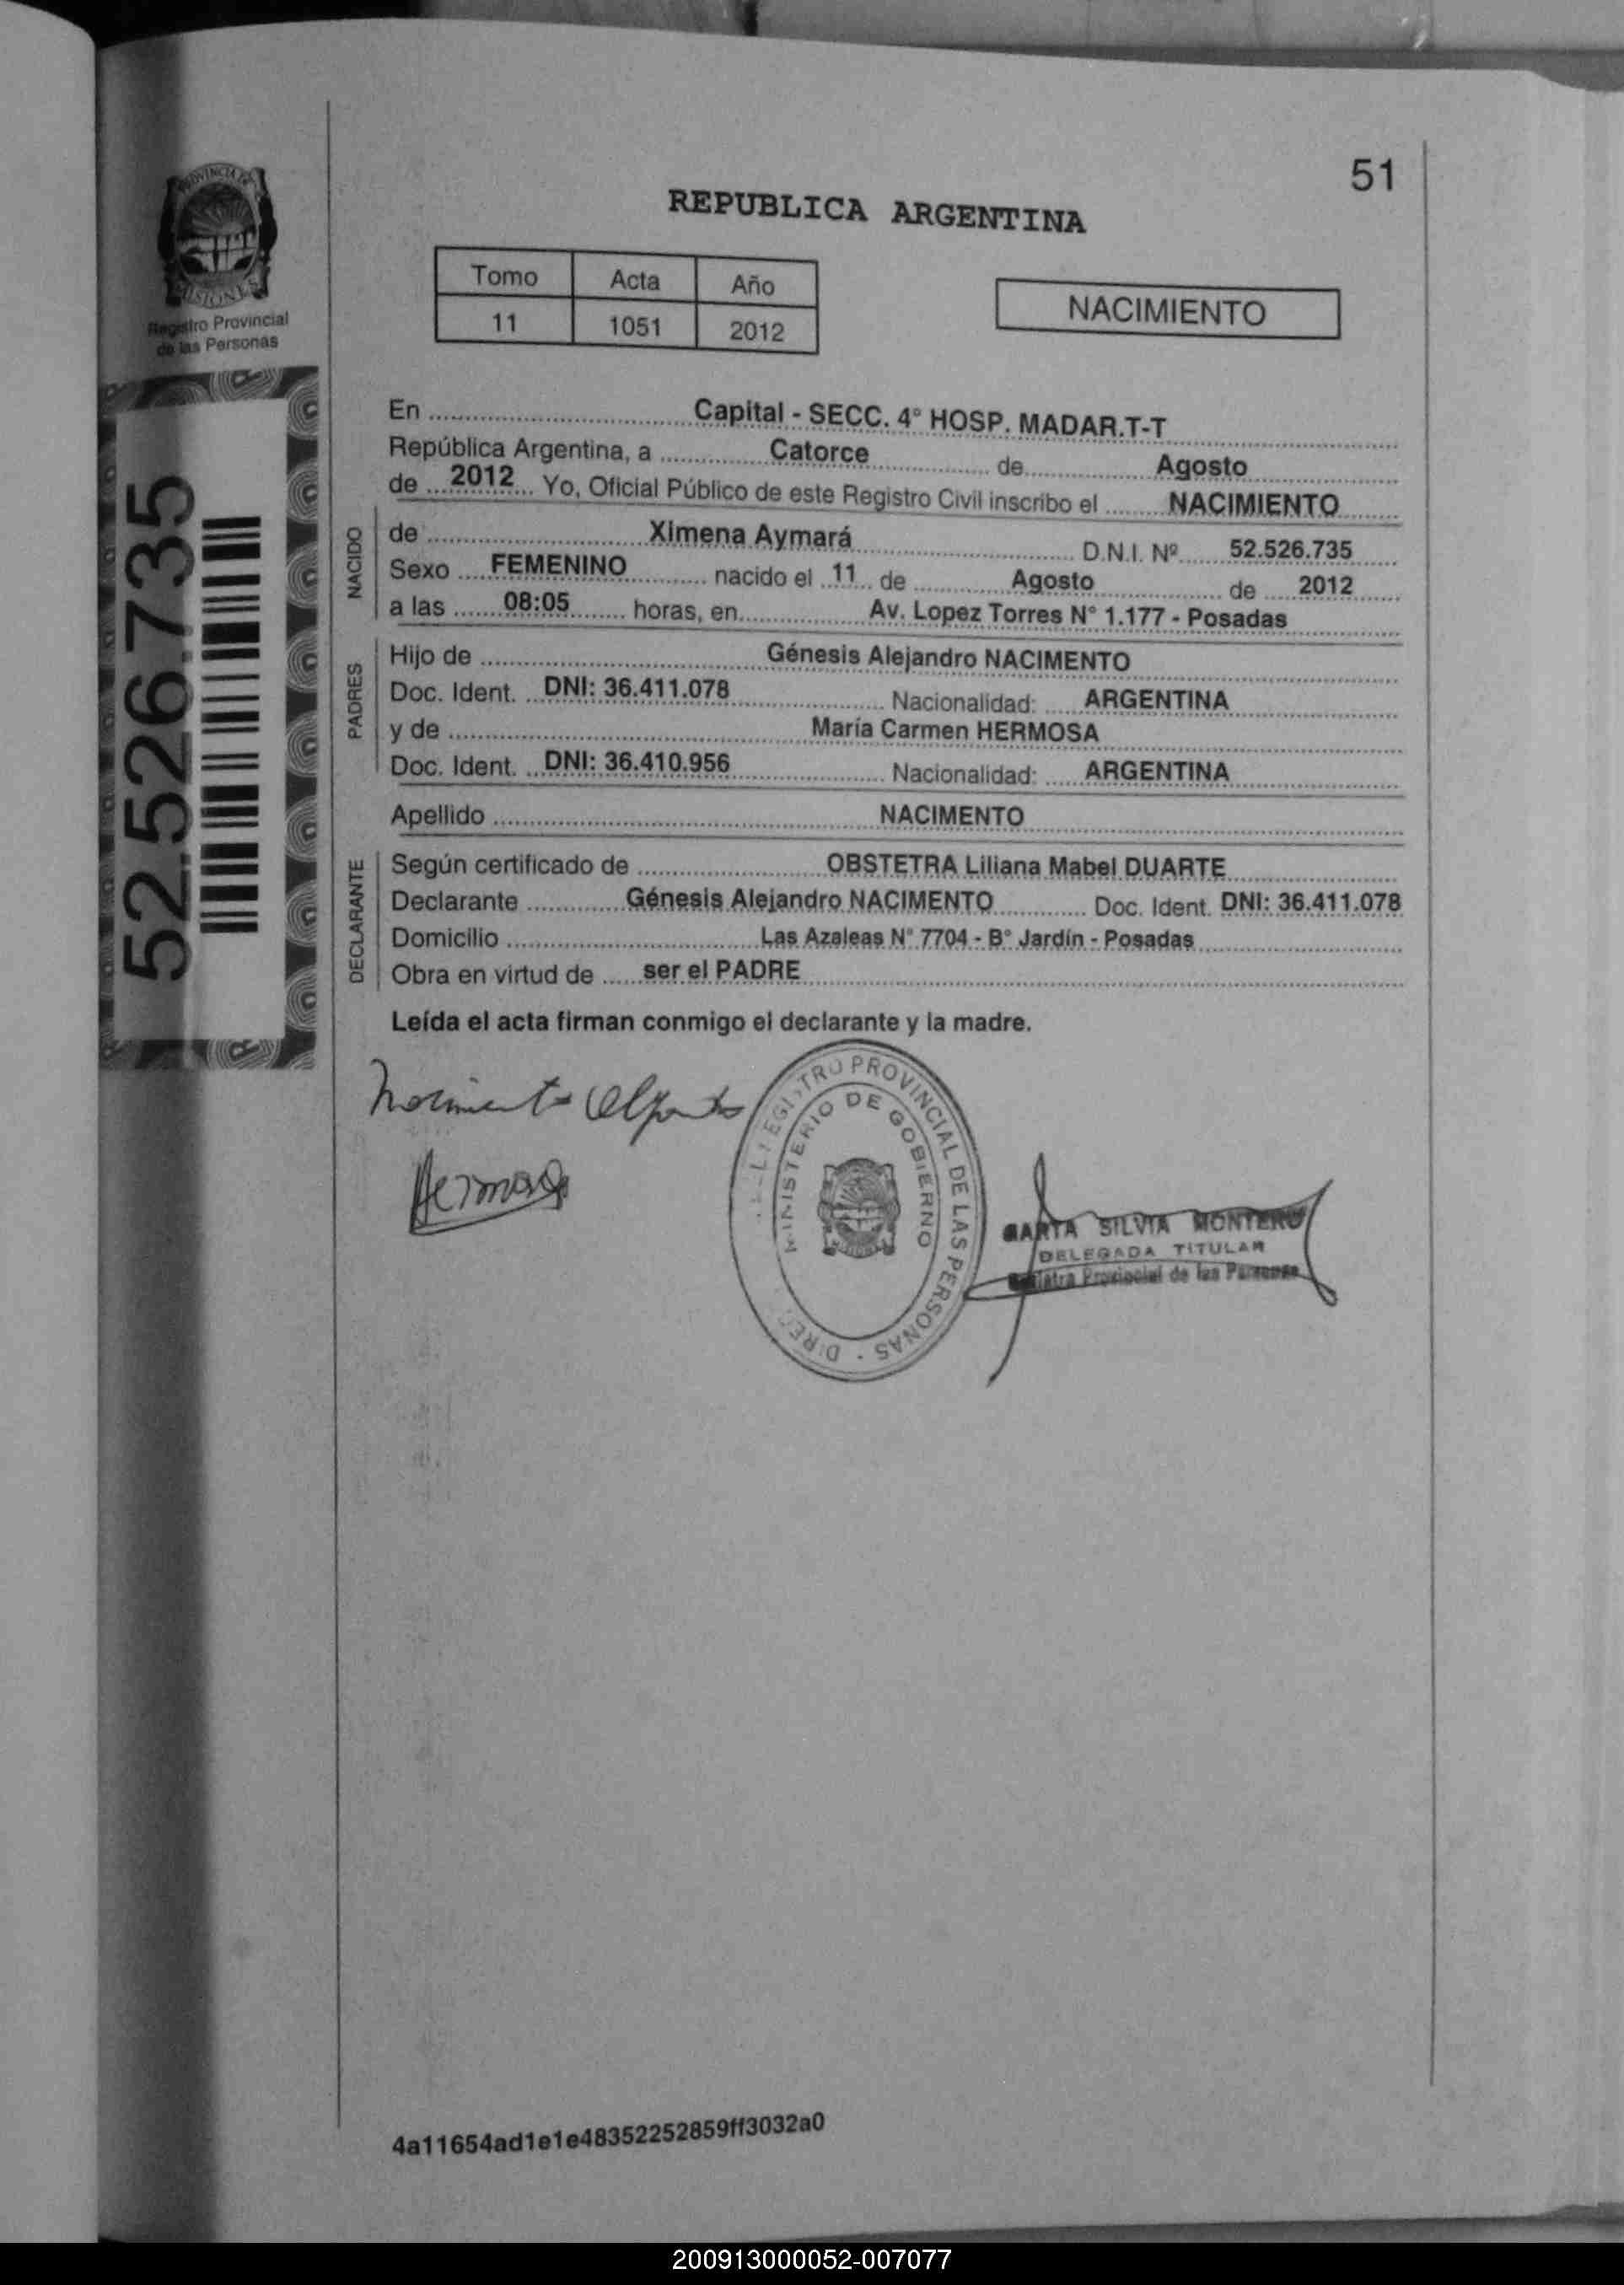 51
PROVINCIA DE
MISIONES
Registro Provincial
de las Personas
REPUBLICA ARGENTINA
Tomo Acta Año
11 1051 2012
NACIMIENTO
52.526.735
En Capital - SECC. 4° HOSP. MADAR.T-T
República Argentina, a Catorce de Agosto
de 2012 Yo, Oficial Público de este Registro Civil inscribo el NACIMIENTO
NACIDO
de Ximena Aymará D.N.I. Nº 52.526.735
Sexo FEMENINO nacido el 11 de Agosto de 2012
a las 08:05 horas, en Av. Lopez Torres N° 1.177 - Posadas
PADRES
Hijo de Génesis Alejandro NACIMENTO
Doc. Ident. DNI: 36.411.078 Nacionalidad: ARGENTINA
y de María Carmen HERMOSA
Doc. Ident. DNI: 36.410.956 Nacionalidad: ARGENTINA
Apellido NACIMENTO
DECLARANTE
Según certificado de OBSTETRA Liliana Mabel DUARTE
Declarante Génesis Alejandro NACIMENTO Doc. Ident. DNI: 36.411.078
Domicilio Las Azaleas N° 7704 - B° Jardín - Posadas
Obra en virtud de ser el PADRE
Leída el acta firman conmigo el declarante y la madre.
PROVINCIAL DE LAS PERSONAS
MINISTERIO DE GOBIERNO
SILVIA MONTERO
DELEGADA TITULAR
Provincial de las Personas
4a11654ad1e1e48352252859ff3032a0
200913000052-007077